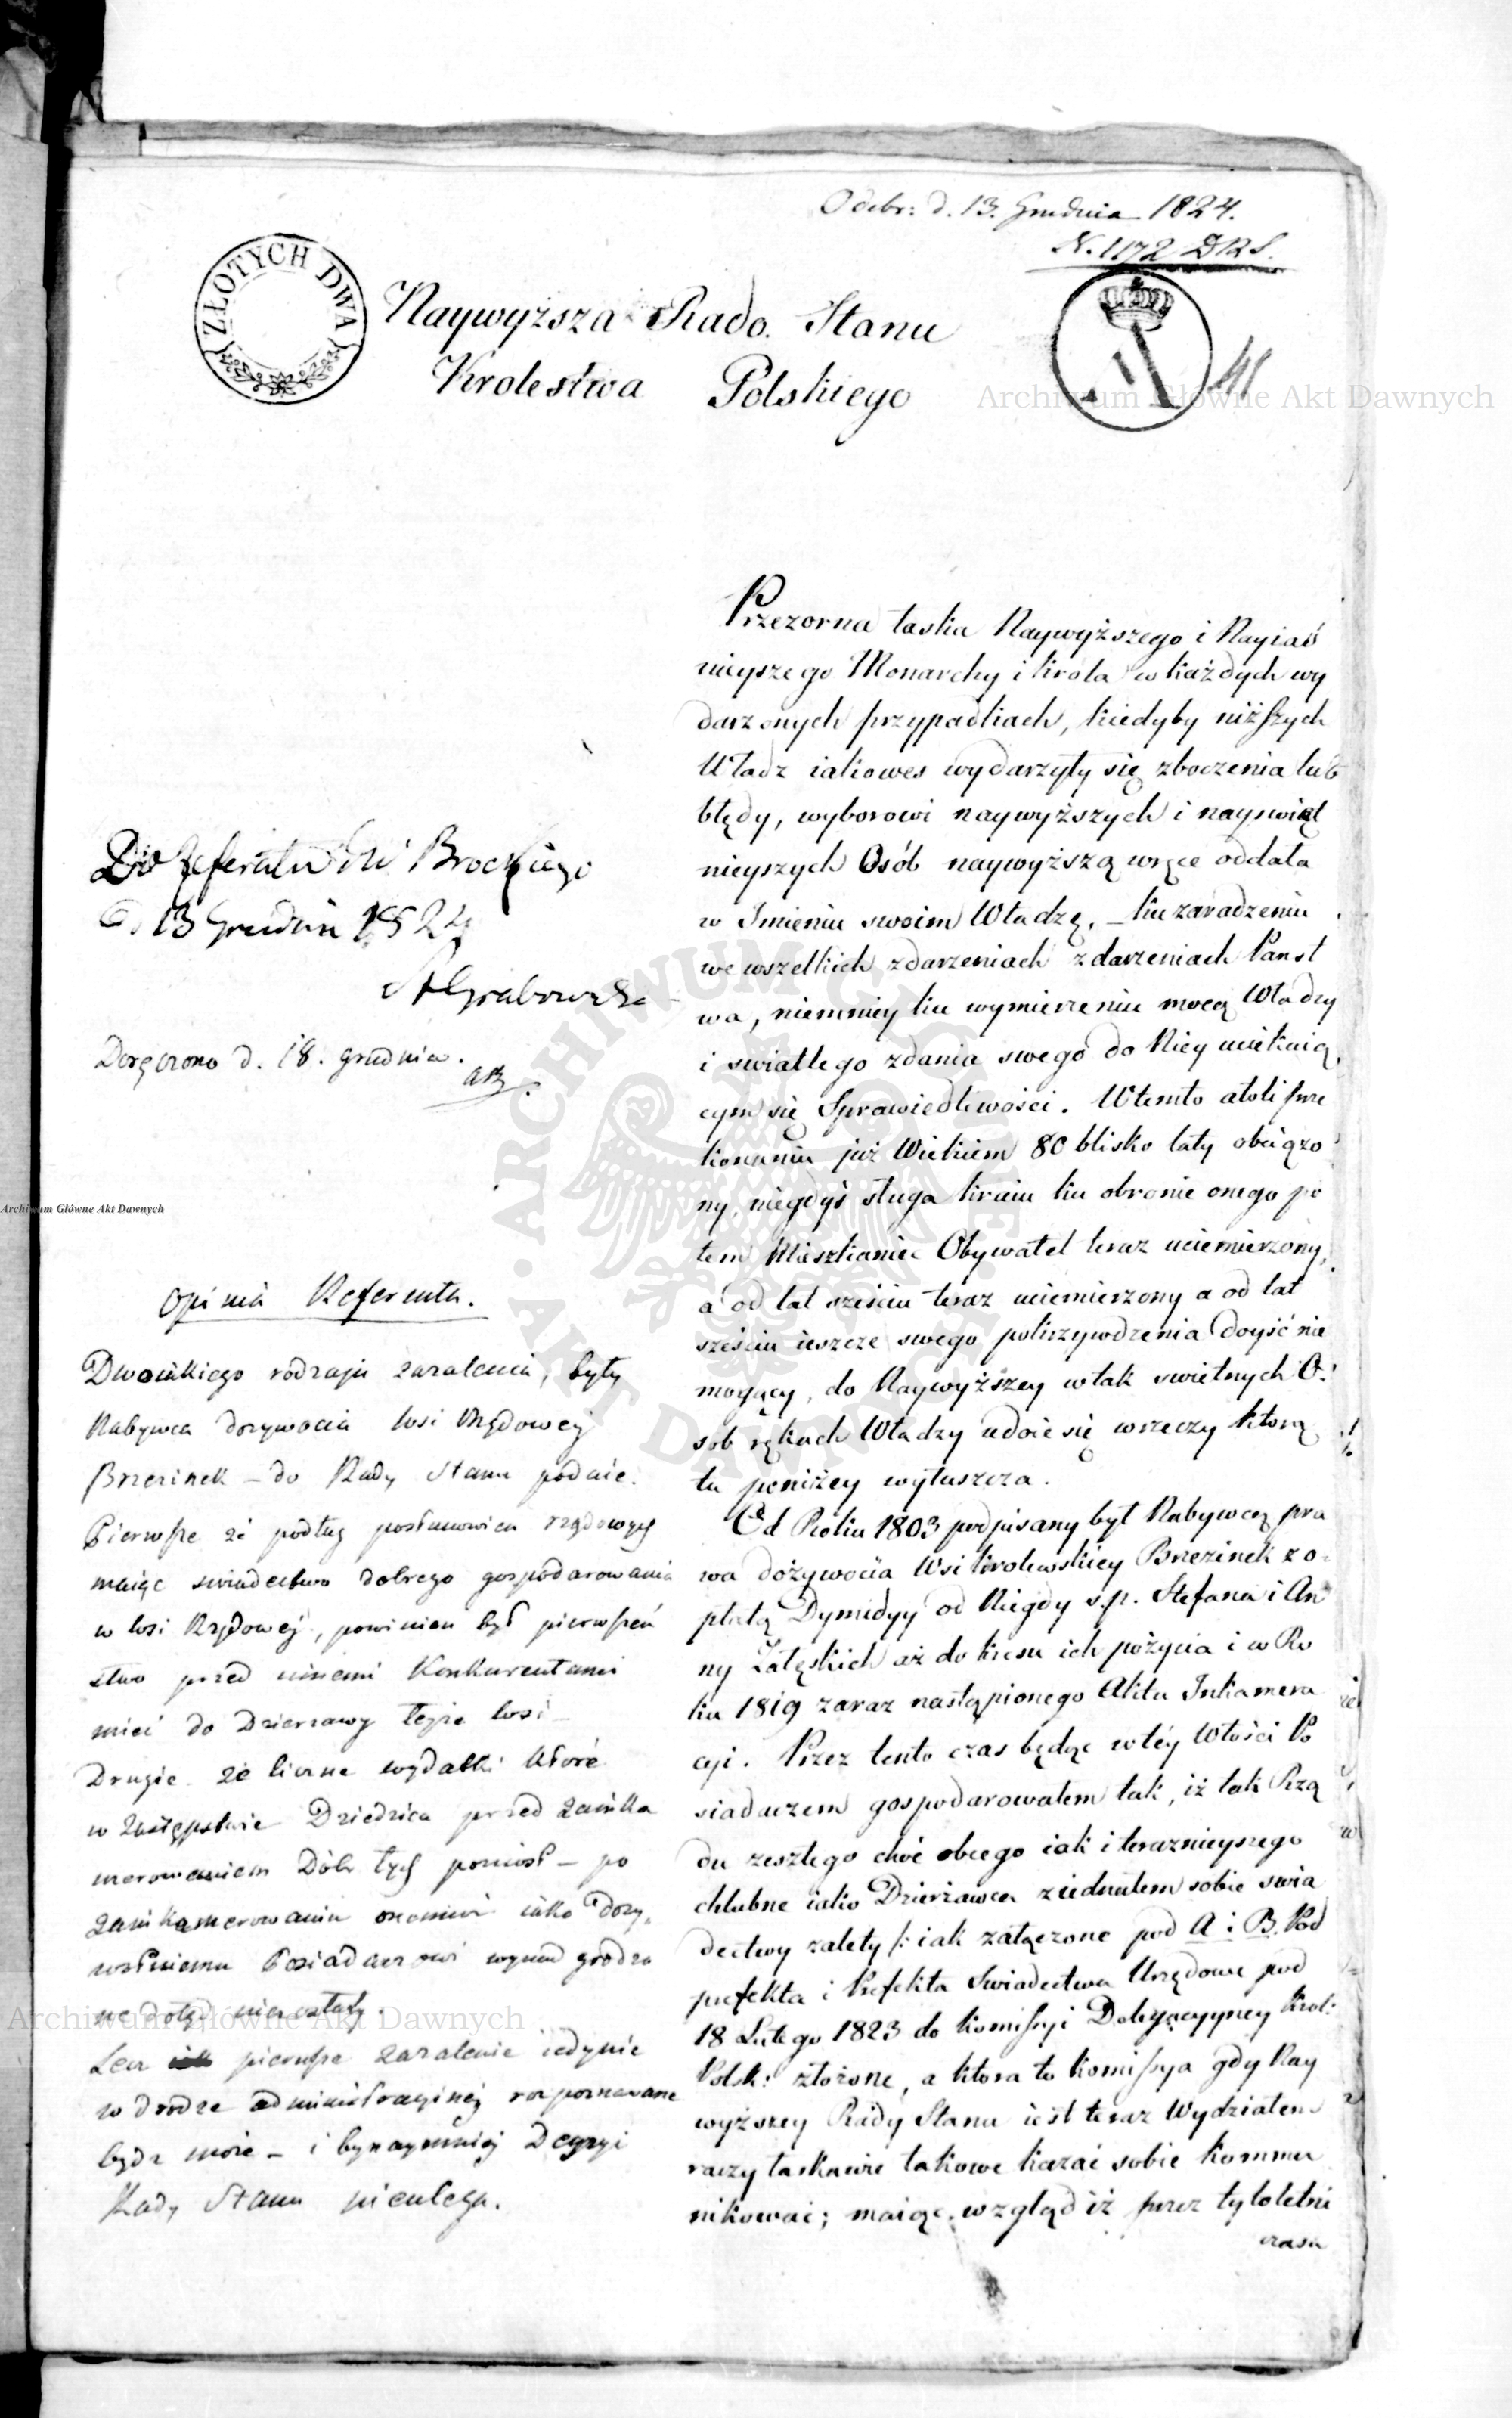 Odebr: d. 13. Grudnia 1824.
N. 1172 DRS.
ZŁOTYCH DWA
Naywyższa Rada Stanu
Krolestwa Polskiego
Archiwum Główne Akt Dawnych
Do referatu Brockiego
d. 13 Grudnia 1824
AGrabowski
Doręczono d. 18. grudnia.
Archiwum Główne Akt Dawnych
Opinia Referenta.
Dwoiakiego rodzaju zażalenia, były
Nabywca dożywocia wsi Rządowej
Brzezinek – do Rady Stanu podaie.
Pierwsze że podług postanowien rządowych
maiąc swiadectwo dobrego gospodarowania
w wsi Rządowej, powinien był pierwszeń
stwo przed innemi Konkurentami
mieć do Dzierzawy tejże wsi –
Drugie. że liczne wydatki które
w zastępstwie Dziedzica przed zainka
merowaniem Dóbr tych poniosł – po
zainkamerowaniu onemuż iako Doży,
wotniemu Posiadaczowi wynadgrodzo
ne dotąd nie zostały.
Archiwum Główne Akt Dawnych
Lecz pierwsze zażalenie iedynie
w drodze administracyinéj rozpoznawane
bydz może – i bynaymniéj Decyzyi
Rady Stanu nieulega.
Przezorna łaska Naywyższego i Nayiaś
nieyszego Monarchy i Króla w każdych wy
darzonych przypadkach, kiedyby niższych
Władz iakowes wydarzyły się zboczenia lub
błędy, wyborowi naywyższych i nayswiat
nieyszych Osób naywyższą w ręce oddała
w Imieniu swoim Władzę, – ku zaradzeniu
we wszelkich zdarzeniach zdarzeniach Panst
wa, niemniey ku wymierzeniu mocą Władzy
i swiatłego zdania swego do Niey uciekaią
cym się Sprawiedliwości. W temto atoli prze
konaniu już Wiekiem 80 blisko laty obciążo
ny, niegdyś sługa kraiu ku obronie onego po
tem Mieszkaniec Obywatel teraz uciemierzony,
a od lat sześciu teraz uciemierzony a od lat
sześciu ieszcze swego pokrzywdzenia doyść nie
mogący, do Naywyższey w tak swietnych O.
sob rękach Władzy udaie się w rzeczy którą
tu poniżey wyłuszcza.
Od Roku 1803 podpisany był Nabywcą pra
wa dożywocia Wsi Krolewskiey Brzezinek z o
płatą Dymidyy od Niegdy s.p. Stefana i An
ny Załęskich aż do kresu ich pożycia i w Ro
ku 1819 zaraz nastąpionego Aktu Inkamera
cyi. Przez tento czas będąc w téy Włości Po
siadaczem gospodarowałem tak, iż tak Rzą
du zeszłego choć obcego iak i teraznieyszego
chlubne iako Dzierżawca ziednałem sobie swia
dectwy zalety /: iak załączone pod A i B. Pod
prefekta i Prefekta Swiadectwa Urzędowe pod
18 Lutego 1823 do Komissyi Delegacyyney Krol:
Polsk: złożone, a ktora to Komissya gdy Nay
wyższey Rady Stanu iest teraz Wydziałem
raczy łaskawie takowe kazać sobie kommu
nikować; maiąc wzgląd iż przez tyloletni
czasu